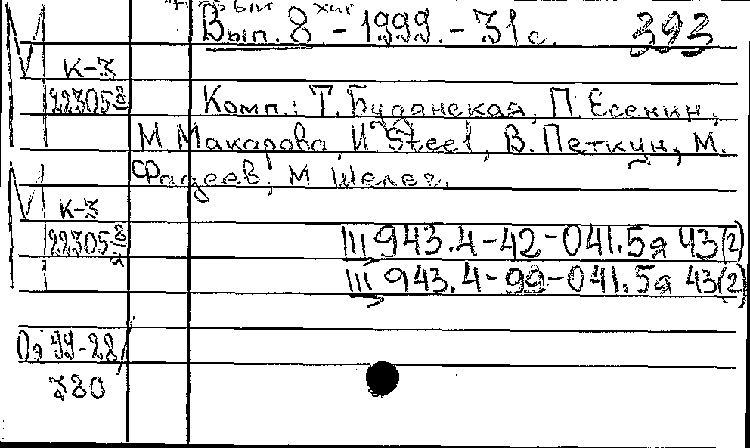 Вып. 8 - 1999. - 31 с. 393
М К-3
22305 8
Комп.: Т. Буданская, П. Есенин,
М. Макарова, И. Steel, В. Петкун, М.
Фадеев, М. Шелег.
М К-3
22305 8/2
Ш 943.4-42-041.5я 43(2)
Ш 943.4-99-041.5я 43(2)
99-28/
380